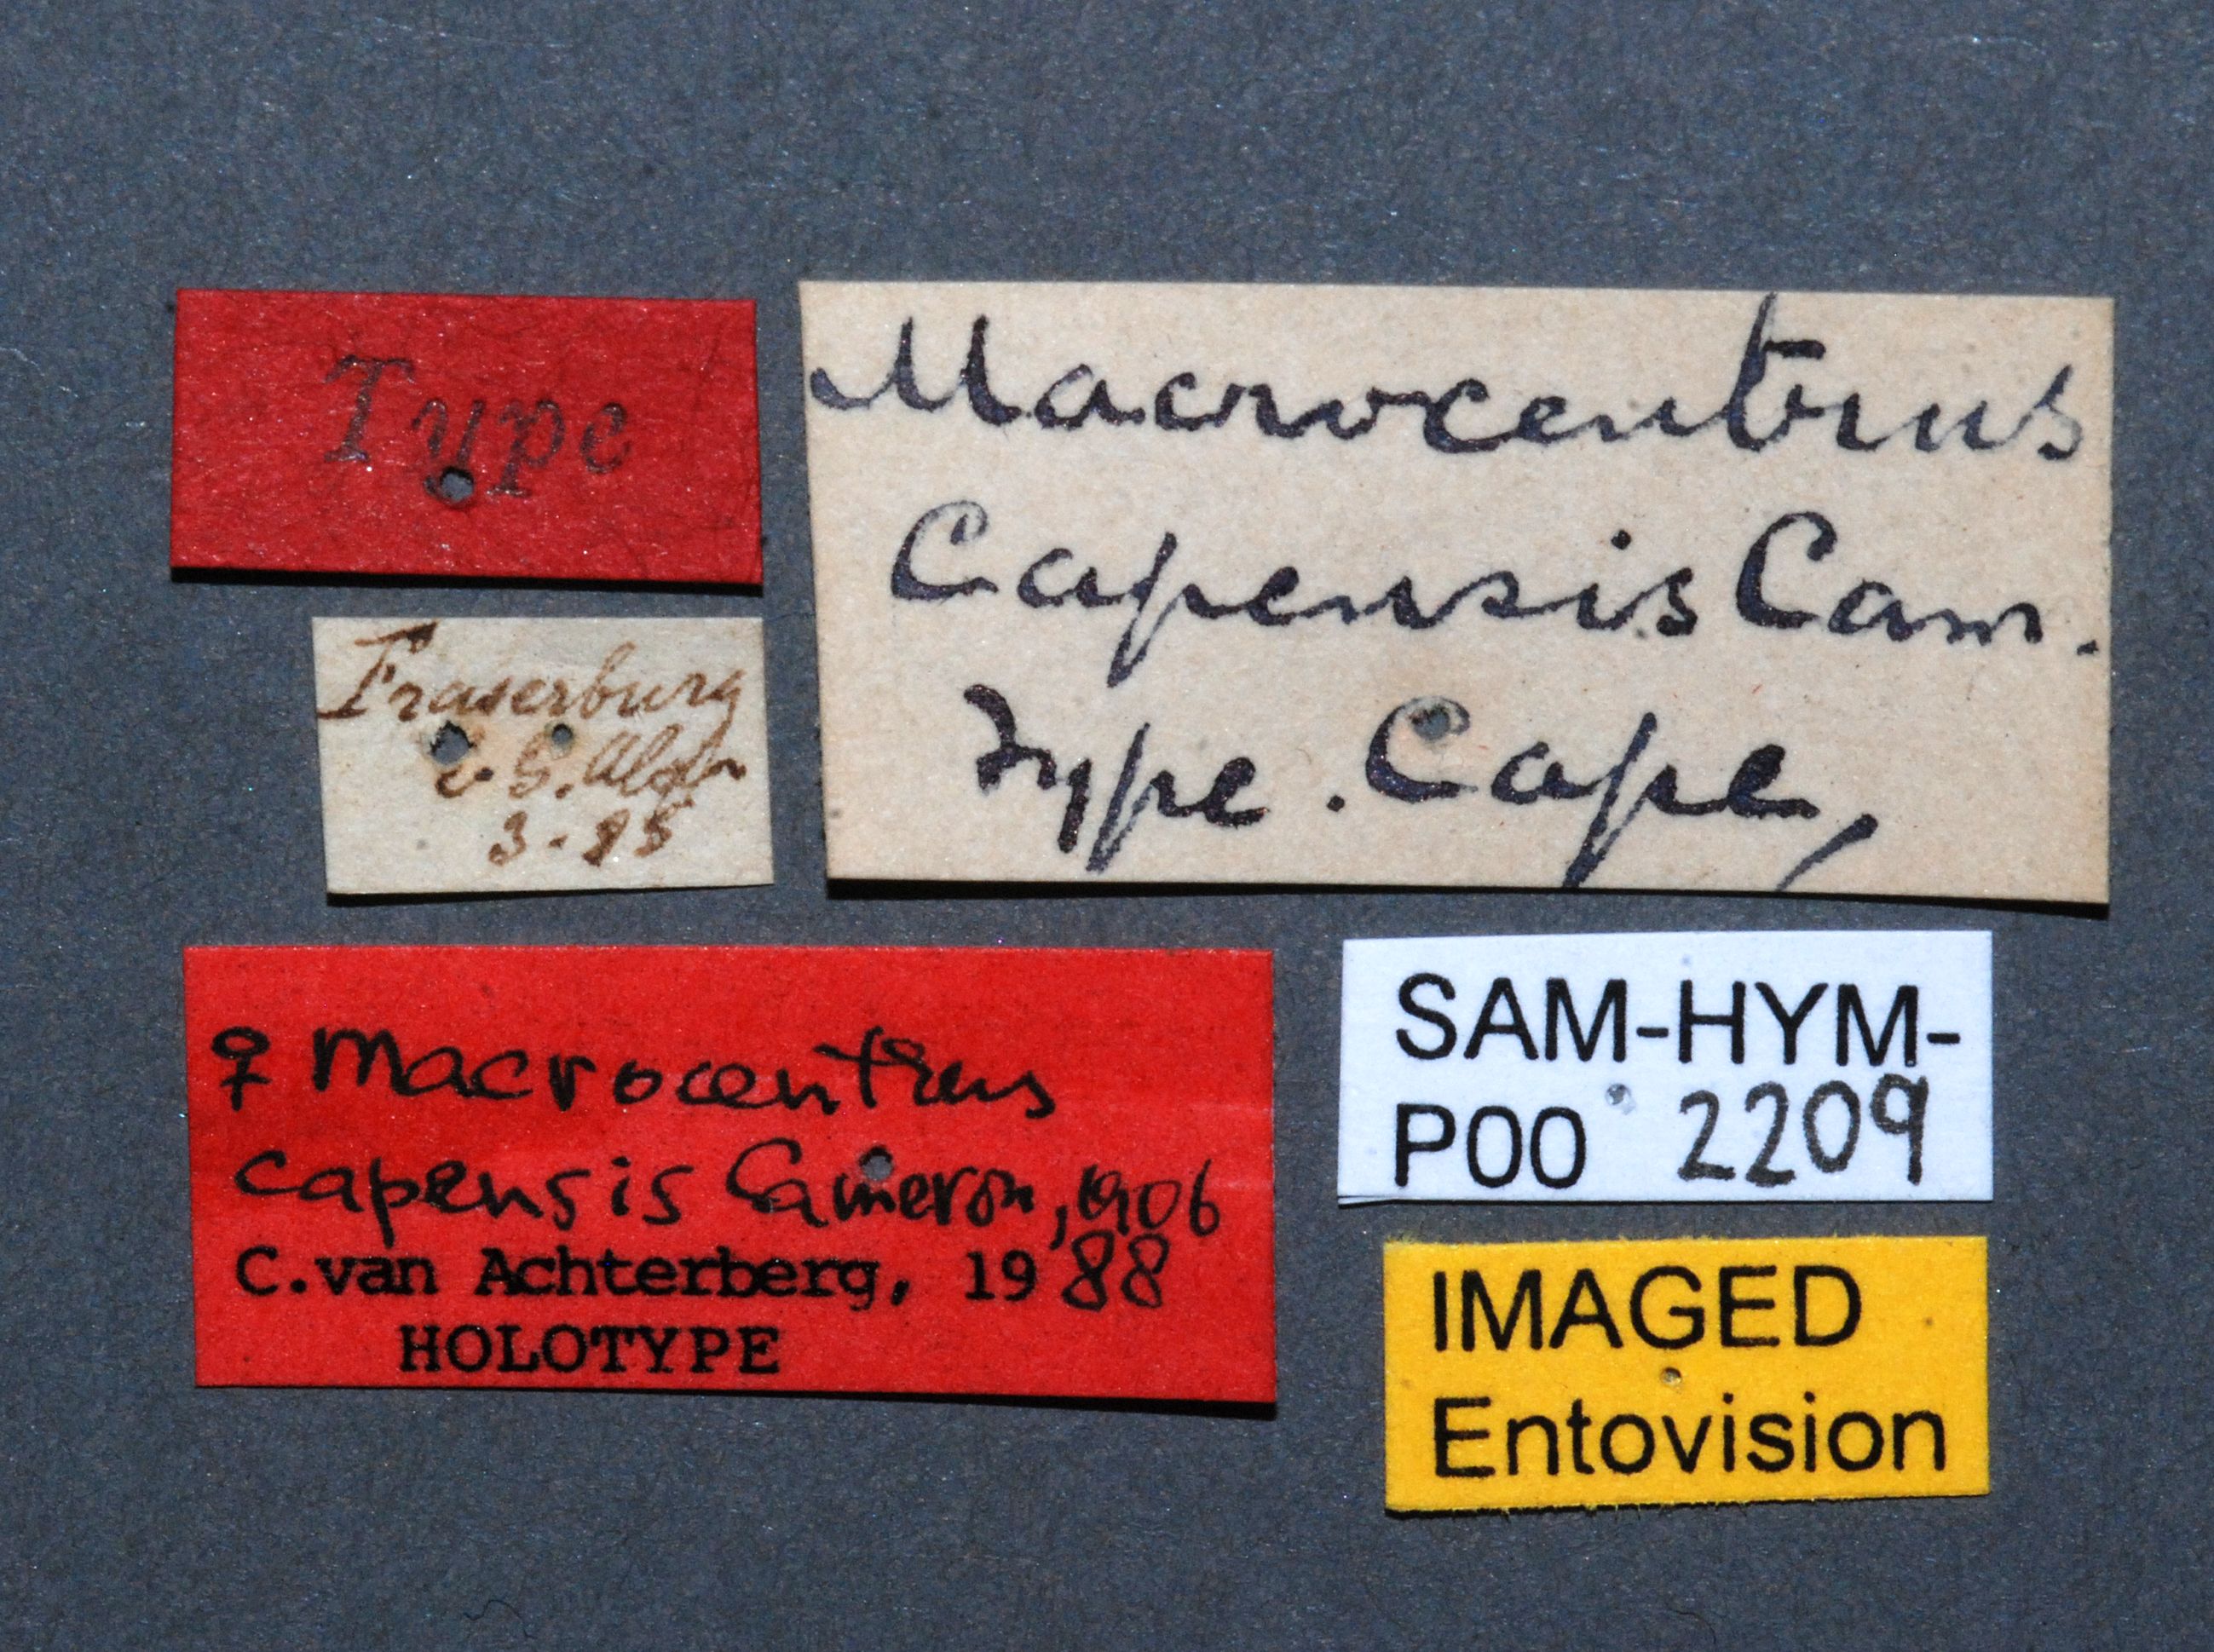 Type
Macrocentrus
Capensis Cam.
Type. Cape,
Fraserburg
G.
3-85
♀ Macrocentrus
capensis Cameron, 1906
C.van Achterberg, 1988
HOLOTYPE
SAM-HYM-
P00 2209
IMAGED
Entovision